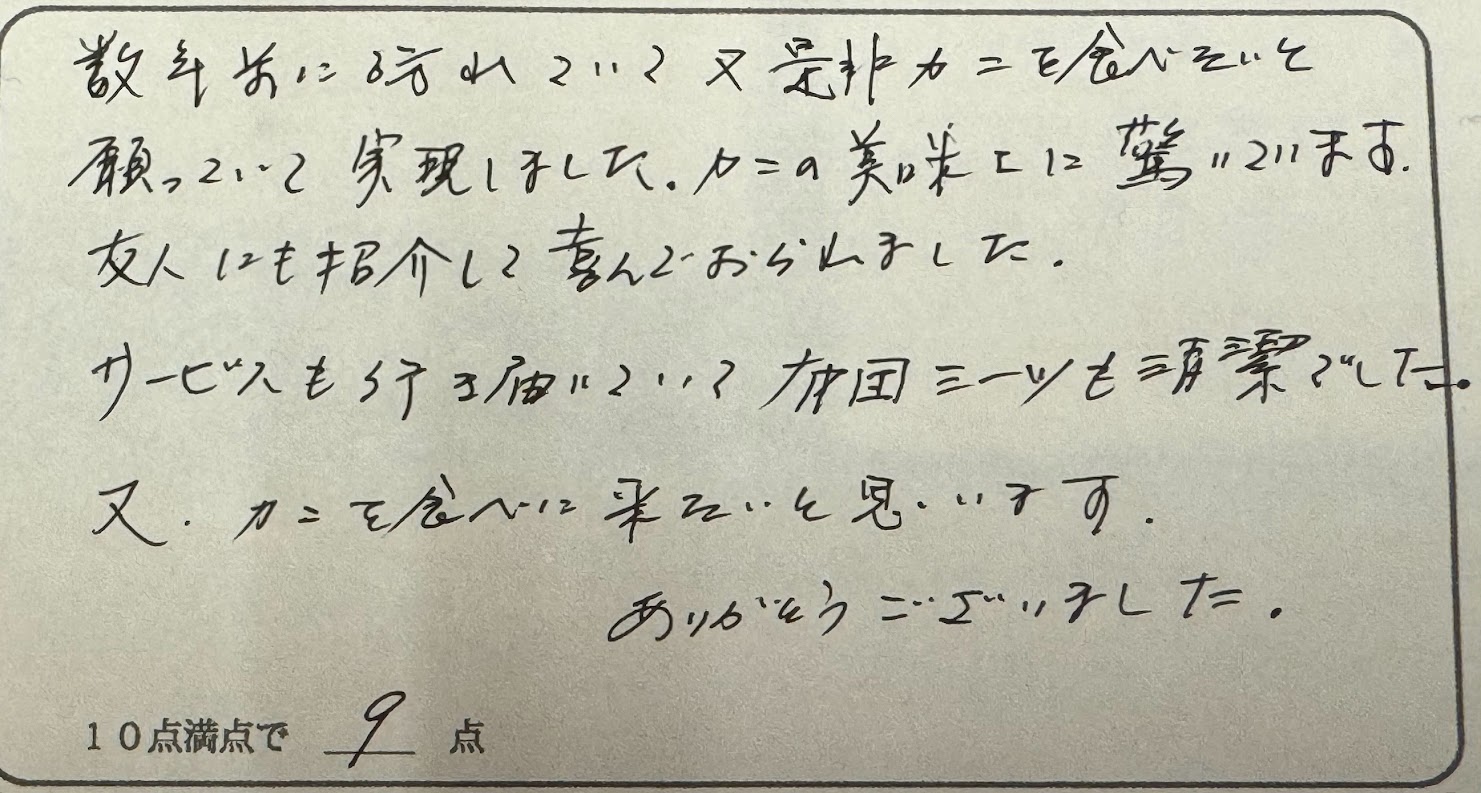 数年前に訪れていて又是非カニを食べたいと
願っていて実現しました。カニの美味さに驚いています。
友人にも紹介して喜んでおられました。
サービスも行き届いていて布団シーツも清潔でした。
又、カニを食べに来たいと思います。
ありがとうございました。
10点満点で 9 点